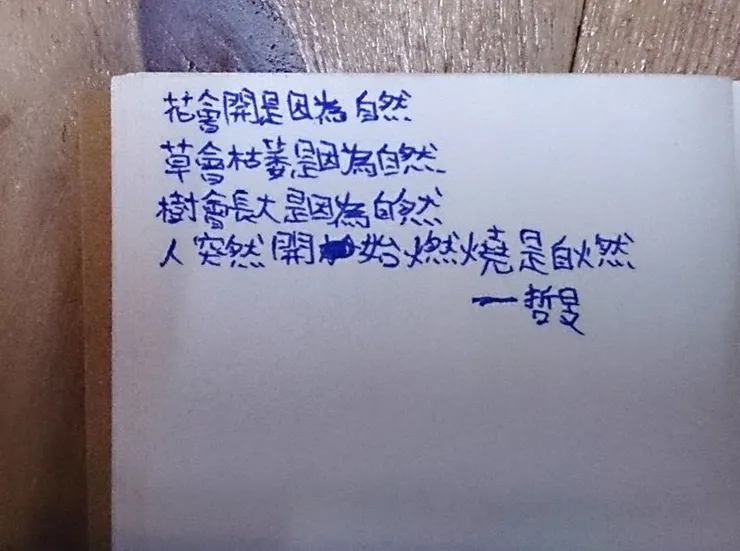 花會開是因為自然
草會枯萎是因為自然
樹會長大是因為自然
人突然開始燃燒是自燃
一哲旻